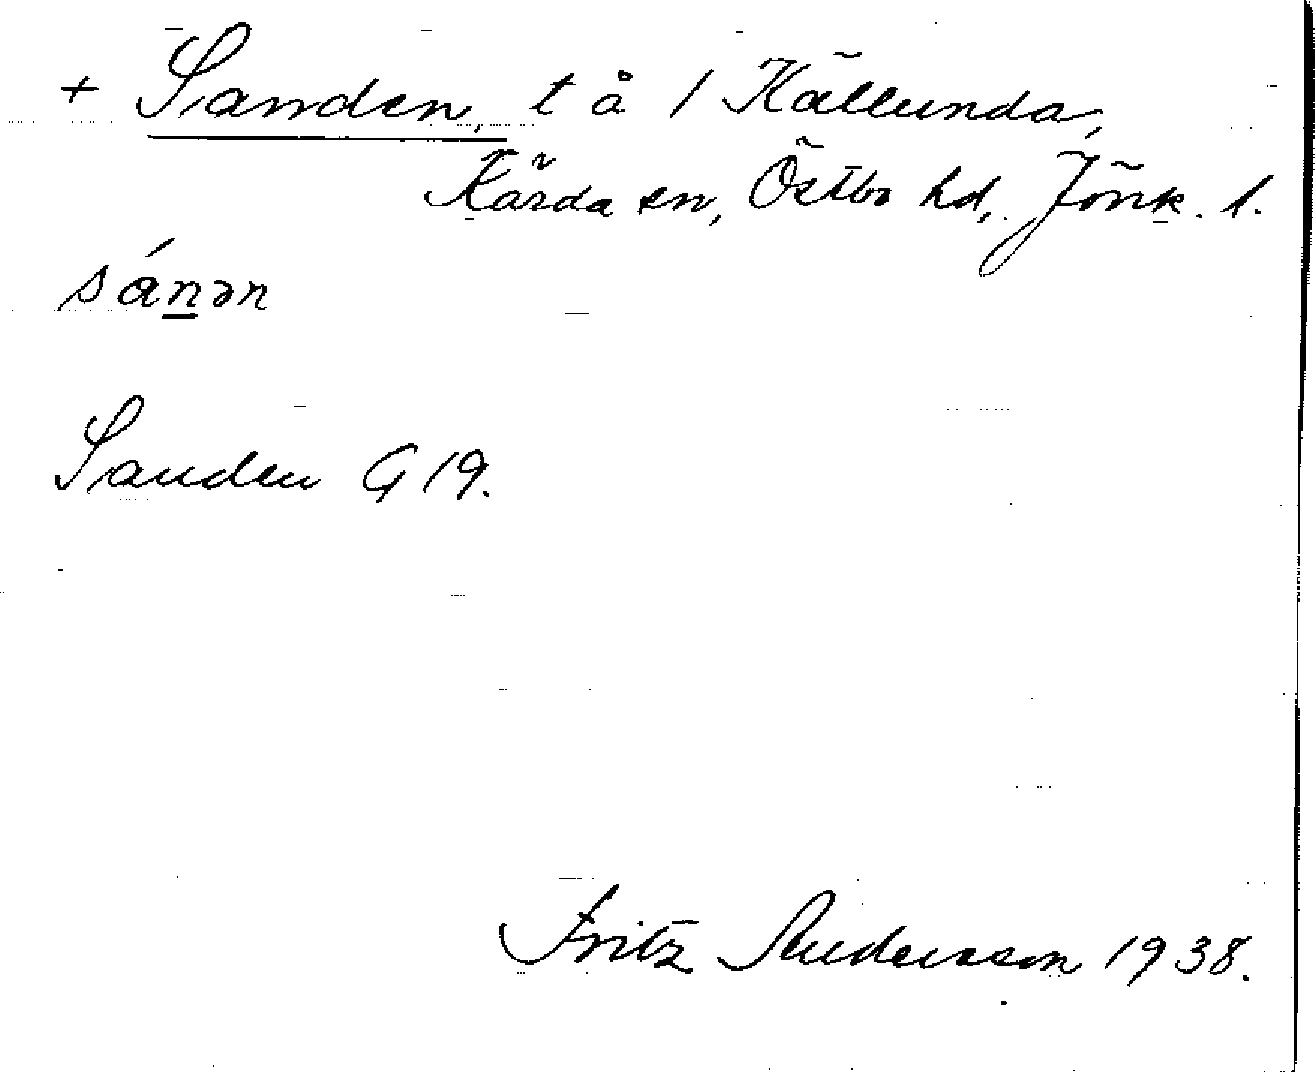 + Sanden, t å / Källunda,
Kärda sn, Östbo hd, Jönk. l.
sánən
Sanden G 19.
Fritz Andersson 1938.